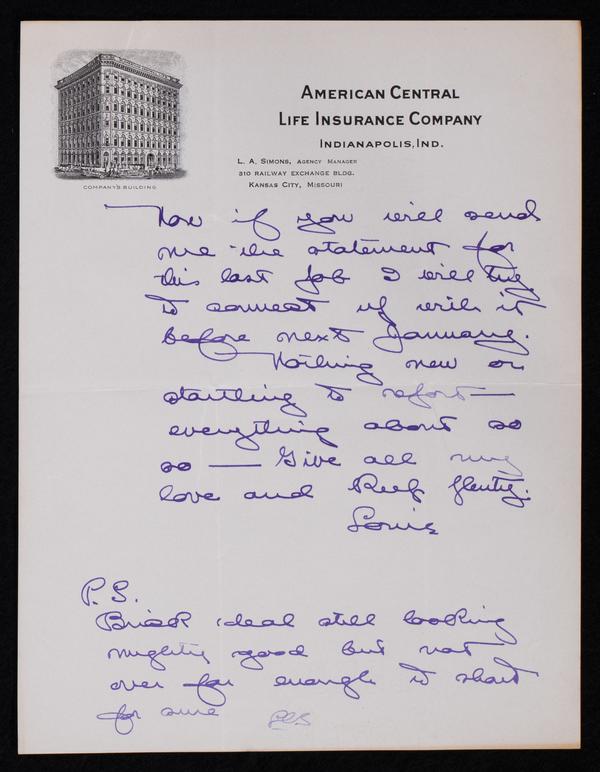 AMERICAN CENTRAL
LIFE INSURANCE COMPANY
INDIANAPOLIS, IND.
L. A. SIMONS, AGENCY MANAGER
310 RAILWAY EXCHANGE BLDG.
KANSAS CITY, MISSOURI
COMPANY'S BUILDING
Now if you will send
me the statement for
this last job I will try
to connect up with it
before next January.
Nothing new or
startling to report —
everything about so
so — Give all my
love and Keep plenty.
Louis
P.S.
Brisk deal still looking
mighty good but not
over far enough to shout
for sure